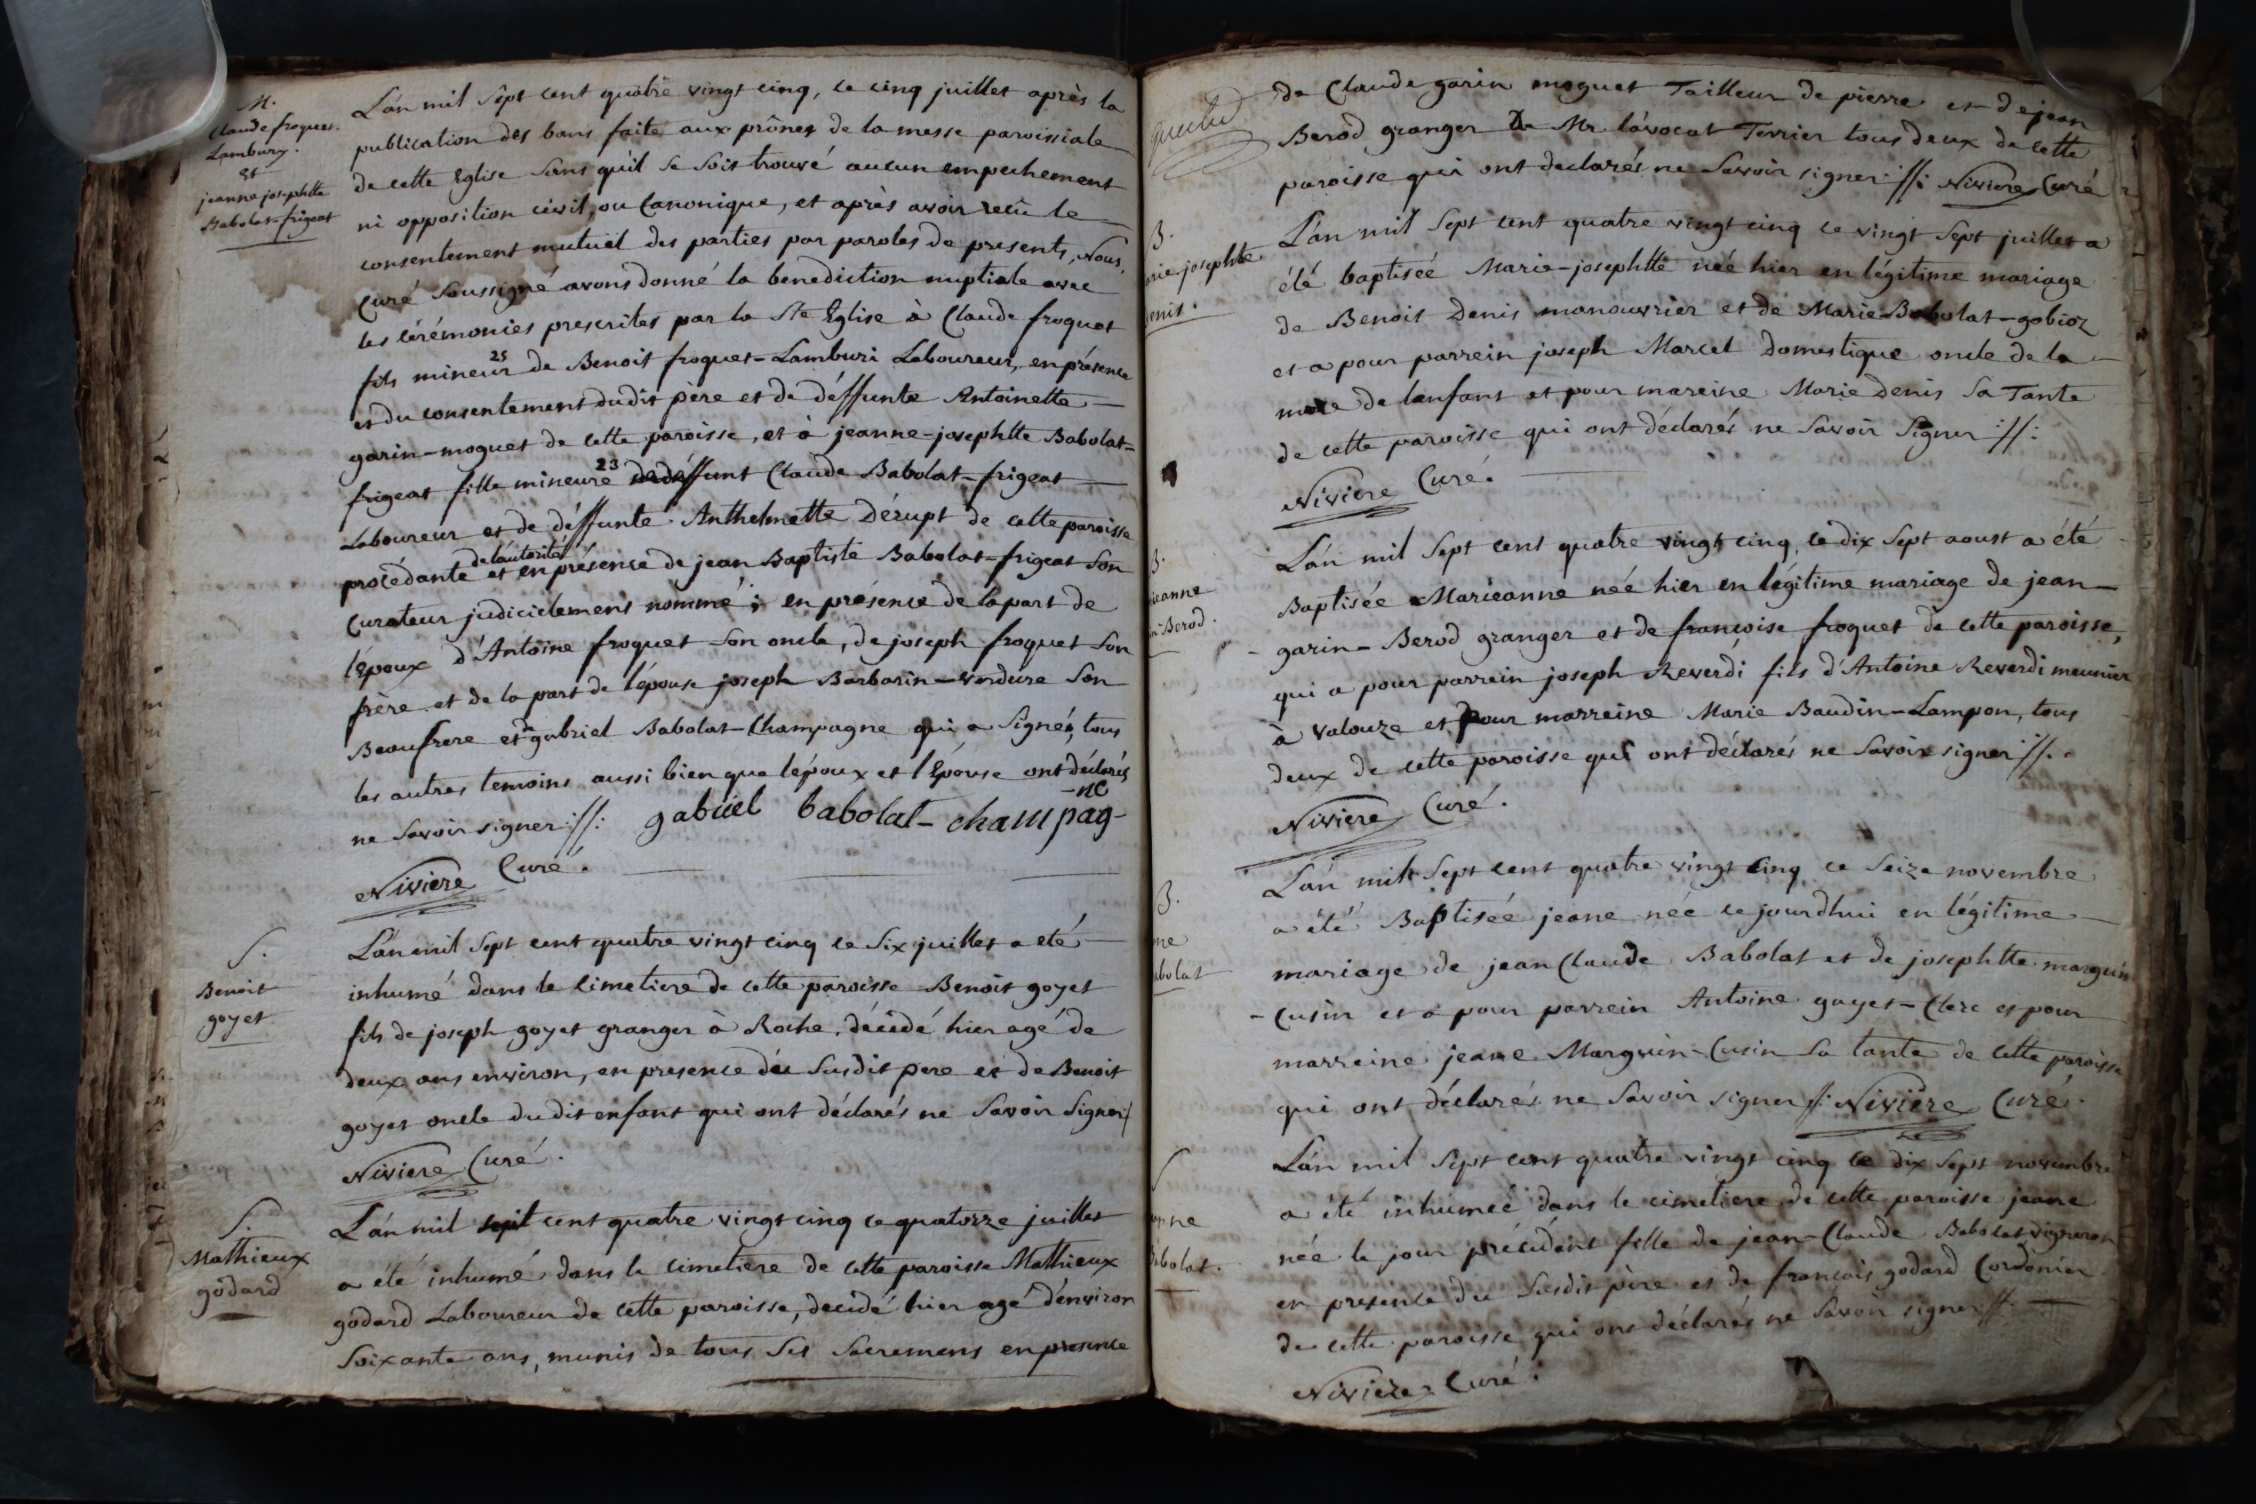 M.
Claude froquet
Lambury.
et
jeanne josephtte
Babolat-frigeat
L'an mil sept cent quatre vingt cinq, ce cinq juillet après la
publication des bans faite aux prônes de la messe paroissiale
de cette Eglise sans qu'il se soit trouvé aucun empechement
ni opposition civil, ou Canonique, et après avoir recu le
consentement mutuel des parties par paroles de presents, Nous,
Curé soussigné avons donné la benediction nuptiale avec
les cérémonies prescrites par la Ste Eglise à Claude froquet
fils mineur 25 de Benoit froquet-Lamburi Laboureur, en présence
et du consentement dudit père et de déffunte Antoinette
garin-moguet de cette paroisse, et à jeanne-josephtte Babolat-
frigeat fille mineure 23 de déffunt Claude Babolat-frigeat
Laboureur et de déffunte Anthelmette Dérupt de cette paroisse
procédante de l'autorité et en présence de jean Baptiste Babolat-frigeat son
Curateur judicielement nommé; en présence de la part de
l'époux d'Antoine froquet son oncle, de joseph froquet son
frère et de la part de l'épouse joseph Barbarin-verdure son
Beaufrere et de gabriel Babolat-Champagne qui a signés, tous
les autres temoins aussi bien que l'époux et l'Epouse ont déclarés
ne savoir signer ://: gabriel babolat-champag-
-ne
Niviere Curé.
S.
Benoit
goyet
L'an mil sept cent quatre vingt cinq ce six juillet a eté
inhumé dans le Cimetiere de cette paroisse Benoit goyet
fils de joseph goyet granger à Roche, décédé hier agé de
deux ans environ, en presence du susdit pere et de Benoit
goyet oncle dudit enfant qui ont déclarés ne savoir signer/
Niviere Curé.
S.
Mathieux
godard
L'an mil sept cent quatre vingt cinq ce quatorze juillet
a été inhumé dans le Cimetiere de cette paroisse Mathieux
godard Laboureur de cette paroisse, décédé hier agé d'environ
Soixante ans, munis de tous ses Sacremens en presence
de Claude garin moguet Tailleur de pierre et de jean
Berod granger De Mr. l'avocat Terrier tous deux de cette
paroisse qui ont declarés ne savoir signer ://: Niviere Curé
B.
arie josephte
enis.
L'an mil sept cent quatre vingt cinq ce vingt sept juillet a
été baptiséé Marie-josephtte néé hier en légitime mariage
de Benoit Denis manouvrier et de Marie Babolat-gobioz
et a pour parrein joseph Marcel Domestique oncle de la
mere de l'enfant et pour mareine Marie Denis sa Tante
de cette paroisse qui ont déclarés ne savoir Signer ://:
Niviere Curé.
B.
ieanne
n Berod.
L'an mil sept cent quatre vingt cinq, ce dix sept aoust a été
Baptisée Marieanne néé hier en légitime mariage de jean
garin-Berod granger et de francoise froquet de cette paroisse,
qui a pour parrein joseph Reverdi fils d'Antoine Reverdi meunier
à valouze et pour marreine Marie Baudin-Lampon, tous
deux de cette paroisse qui ont déclarés ne savoir signer ://.
Niviere Curé.
B.
ne
abolat
L'an mil sept cent quatre vingt cinq ce seize novembre
a été Baptiséé jeane née ce jourdhui en légitime
mariage de jean Claude Babolat et de josephtte marguin
-Cusin et a pour parrein Antoine guyet-Clerc et pour
marreine jeane Marguin-Cusin sa tante de cette paroisse
qui ont déclarés ne savoir signer //: Niviere Curé.
S
anne
abolat.
L'an mil sept cent quatre vingt cinq ce dix sept novembre
a été inhuméé dans le cimetiere de cette paroisse jeane
née le jour précédent fille de jean-Claude Babolat vigneron
en presence du susdit père et de francois godard Cordonier
de cette paroisse qui ont déclarés ne savoir signer //.
Niviere Curé.